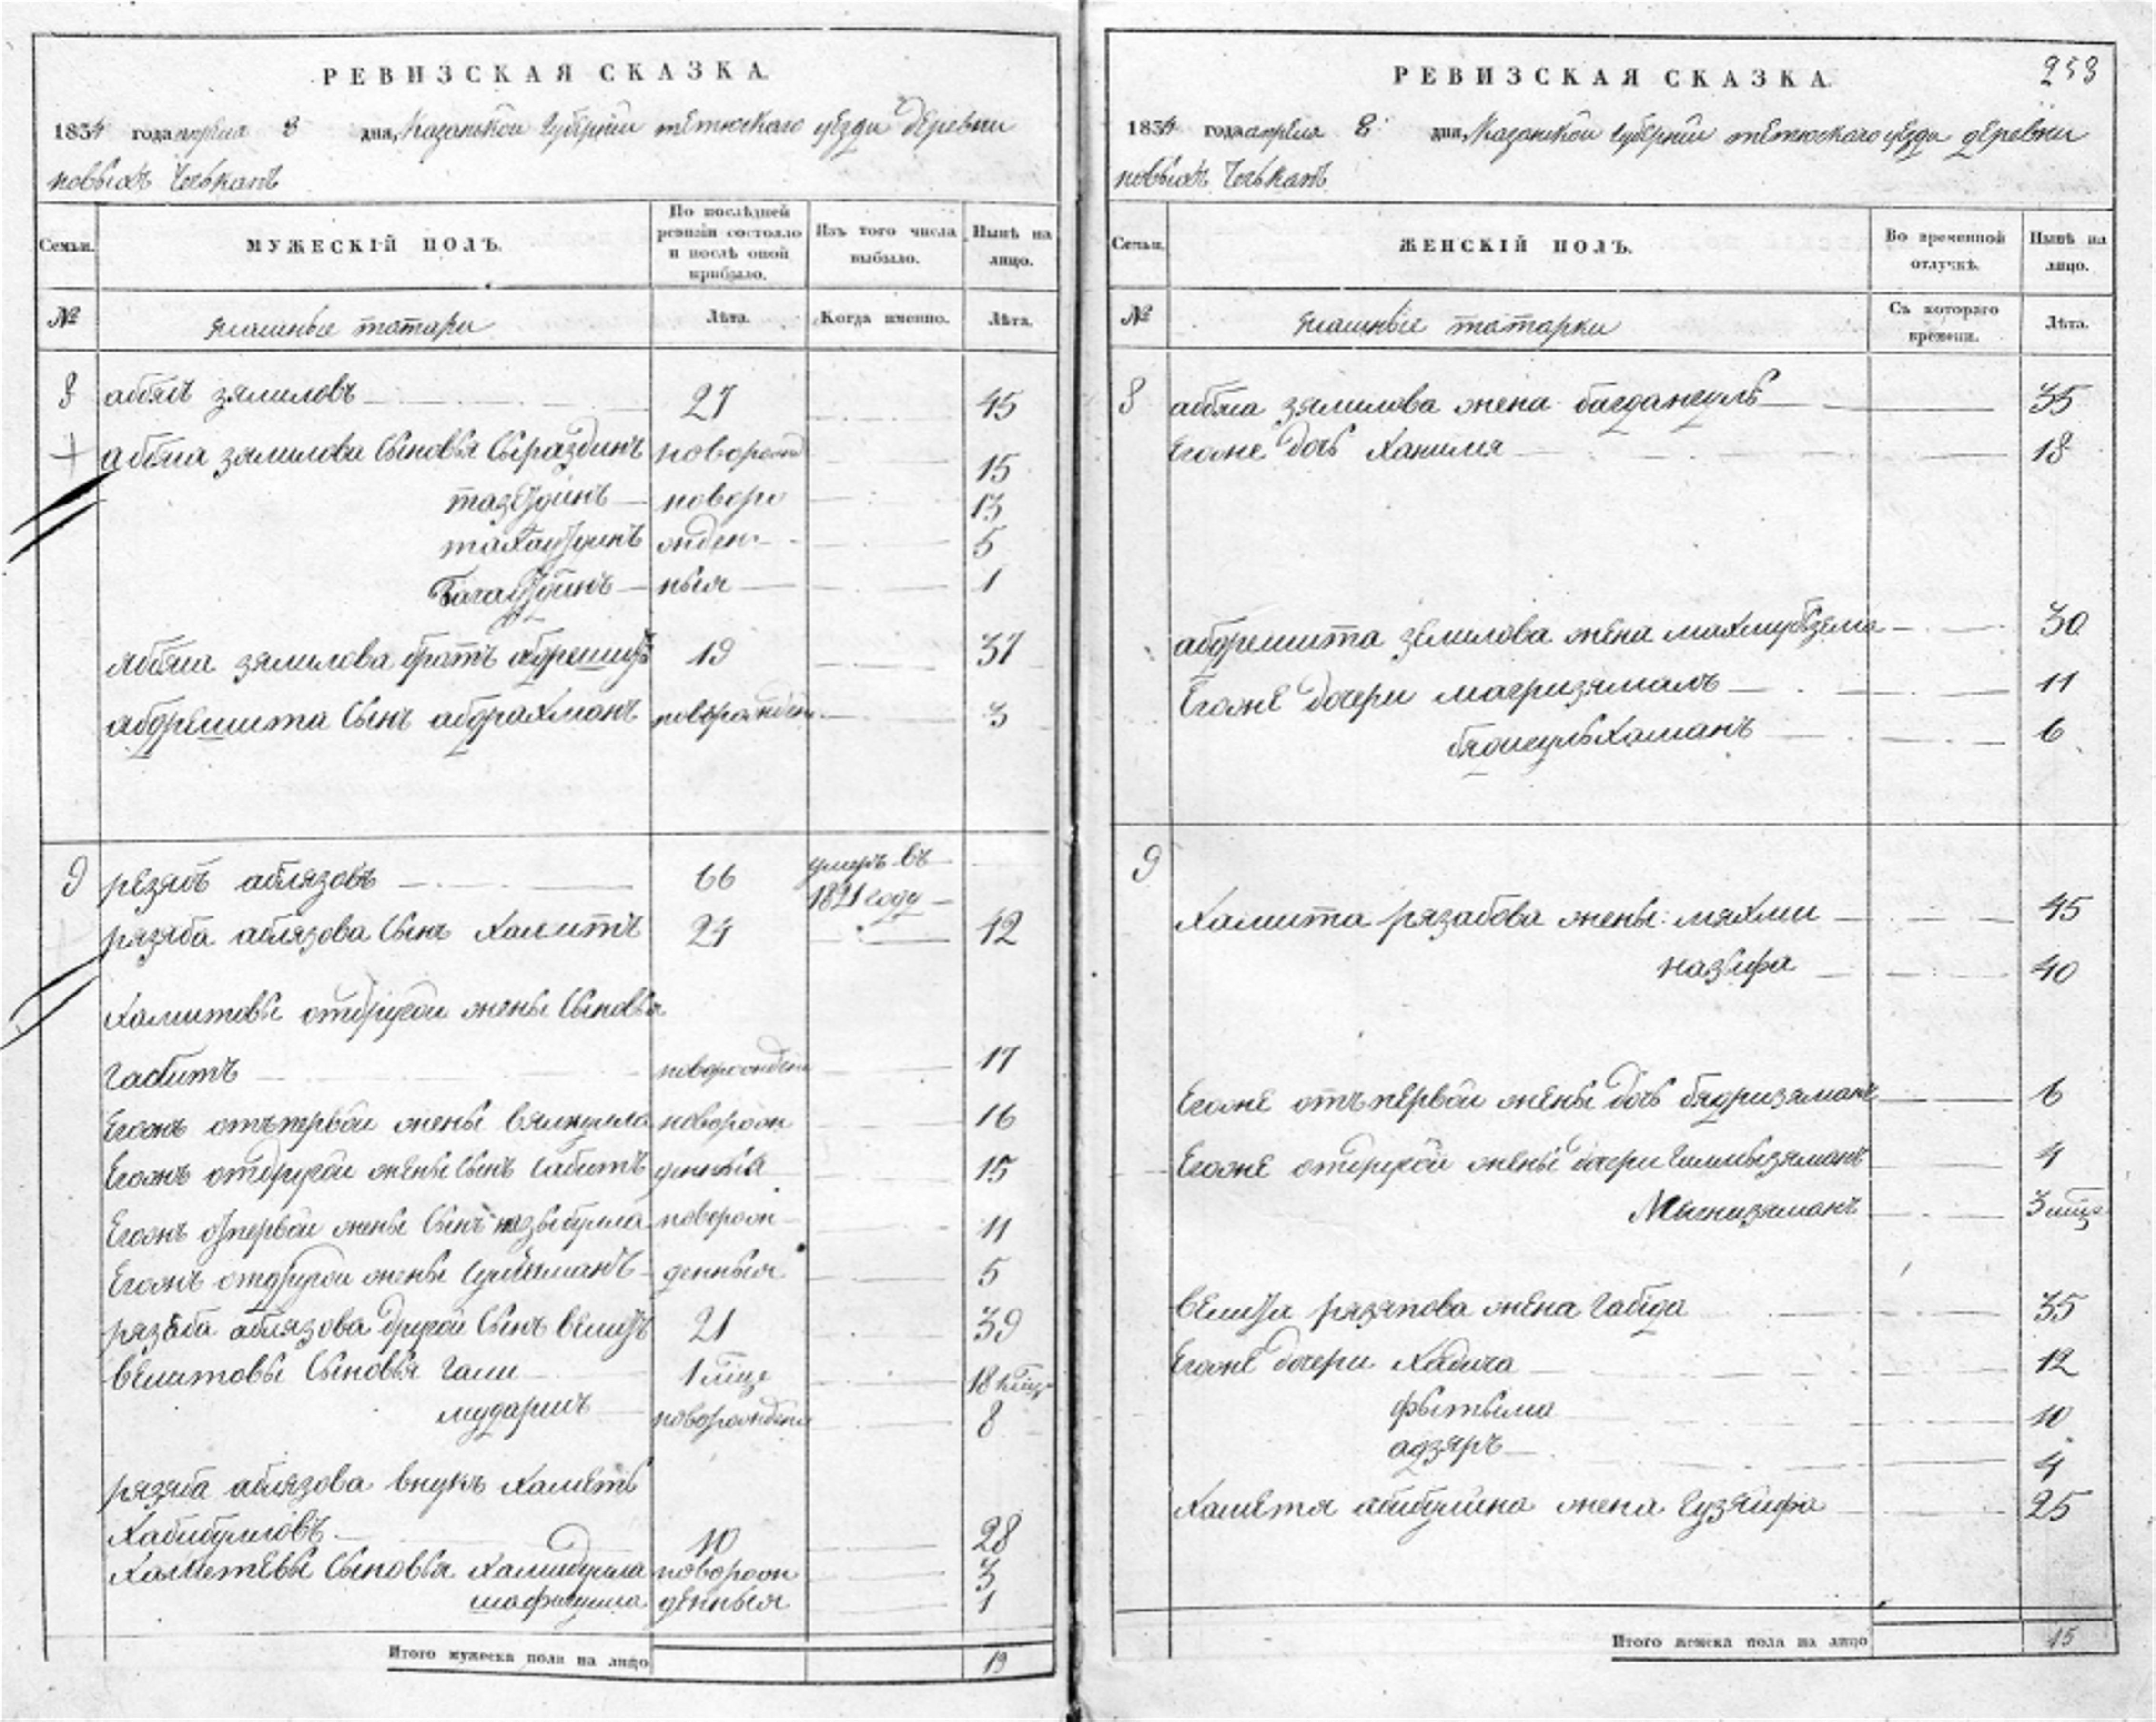 РЕВИЗСКАЯ СКАЗКА.
1834 года апреля 8 дня, Казанской Губернии тетюскаго уезда деревни
новыхъ
Семьи. МУЖЕСКІЙ ПОЛЪ. По послѣдней ревизіи состояло и послѣ оной прибыло. Изъ того числа выбыло. Нынѣ на лицо.
№ ясашные татары Лѣта. Когда именно. Лѣта.
8 аббясъ зямиловъ 27 45
аббяса зямилова Сыновья Сыраздинъ новорожд 15
тазетдинъ новоро 13
жден 5
багаутдинъ ныя 1
аббяса зямилова братъ абдрешитъ 19 37
абдрешита Сынъ абдрахманъ новорожден 3
9 резябъ аблязовъ 66 умеръ въ 1821 году
рязяба аблязова Сынъ Хамитъ 24 42
Хамитовы отдругой жены Сыновья
Габитъ новорожден 17
Егожъ отъ первой жены новорож 16
Егожъ отдругой жены Сынъ Сабитъ денныя 15
Егожъ отпервой жены Сынъ новорож 11
Егожъ отдругой жены денныя 5
рязяба аблязова другой Сынъ велитъ 21 39
велитовы Сыновья Гали 1 18
мударисъ новорожден 8
рязяба аблязова внукъ Хаметь
Хабибулловъ 10 28
Хаметевы Сыновья Хамидулла новорож 3
шафигулла денныя 1
Итого мужеска пола на лицо 19
РЕВИЗСКАЯ СКАЗКА. 253
1834 года апреля 8 дня, Казанской Губернии тетюскаго уезда деревни
новыхъ
Семьи. ЖЕНСКІЙ ПОЛЪ. Во временной отлучкѣ. Нынѣ на лицо.
№ ясашные татарки Съ котораго времени. Лѣта.
8 аббяса зямилова жена багдангуль 35
Егоже дочь 18
абдрешита зямилова жена 30
Егоже дочери магризямалъ 11
6
9
Хамита рязабова жены: мяхми 45
назифа 40
Егоже отъ первой жены дочь бядризяманъ 6
Егоже отдругой жены дочери 4
3
велита рязяпова жена Габида 35
Егоже дочери Хадича 12
фытыма 10
адзяръ 4
Хаметя абибулина жена Гузяифа 25
Итого женска пола на лицо 15